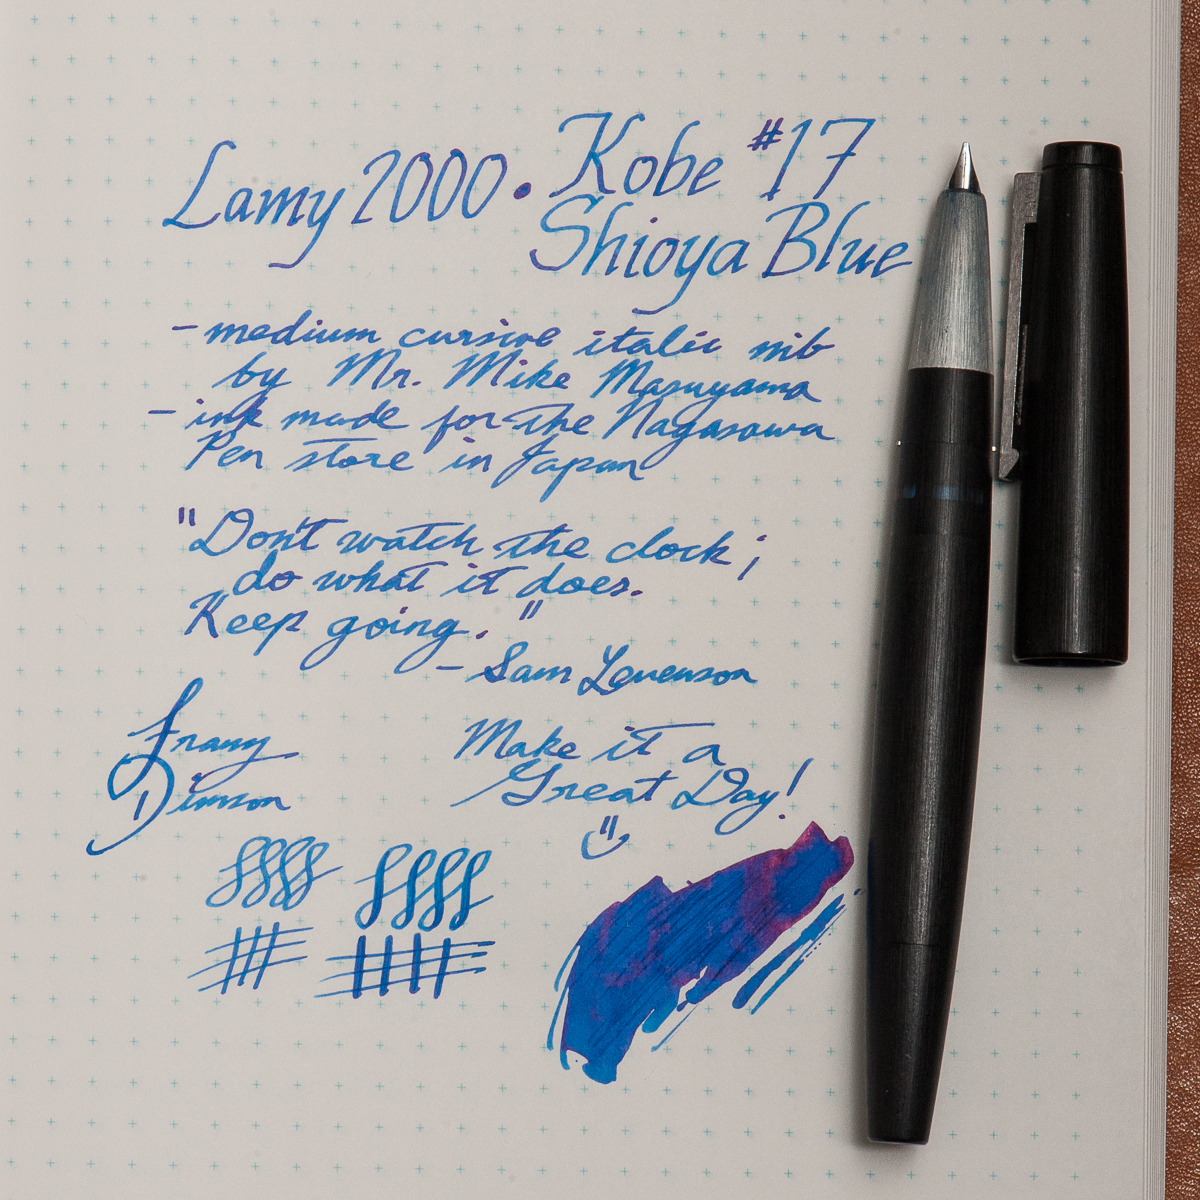 Lamy 2000 • Kobe #17
Shioya Blue
- medium cursive italic nib
by Mr. Mike Masuyama
- ink made for the Nagasawa
Pen store in Japan
"Don't watch the clock;
do what it does.
Keep going."
- Sam Levenson
Franny
Dimson
Make it a
Great Day!